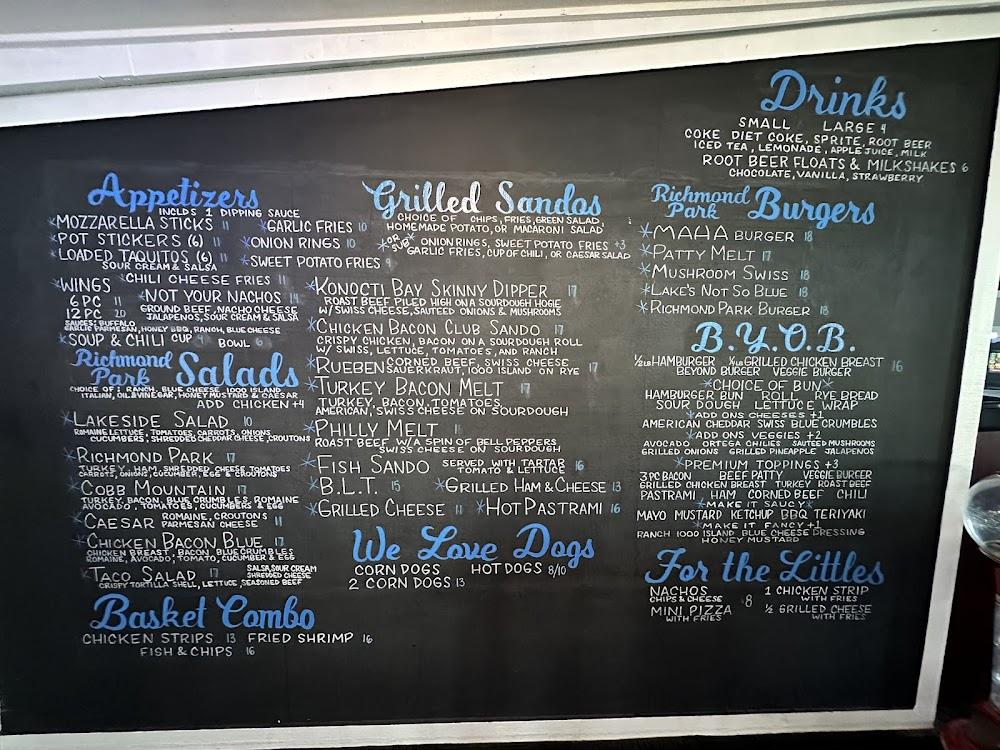 Drinks
SMALL LARGE 4
COKE DIET COKE, SPRITE, ROOT BEER
ICED TEA, LEMONADE, APPLE JUICE, MILK
ROOT BEER FLOATS & MILKSHAKES 6
CHOCOLATE, VANILLA, STRAWBERRY
Appetizers
INCLDS 1 DIPPING SAUCE
*MOZZARELLA STICKS 11 *GARLIC FRIES 10
*POT STICKERS (6) 11 *ONION RINGS 10
*LOADED TAQUITOS (6) 11 *SWEET POTATO FRIES 9
SOUR CREAM & SALSA
*CHILI CHEESE FRIES 11
*WINGS
6 PC 11
12 PC 20
SAUCES: BUFFALO
GARLIC PARMESAN, HONEY BBQ, RANCH, BLUE CHEESE
*NOT YOUR NACHOS 14
GROUND BEEF, NACHO CHEESE
JALAPENOS, SOUR CREAM & SALSA
*SOUP & CHILI CUP BOWL 6
Richmond Park Salads
CHOICE OF: RANCH, BLUE CHEESE, 1000 ISLAND
ITALIAN, OIL & VINEGAR, HONEY MUSTARD & CAESAR
ADD CHICKEN +4
*LAKESIDE SALAD 10
ROMAINE LETTUCE, TOMATOES, CARROTS, ONIONS
CUCUMBERS, SHREDDED CHEDDAR CHEESE, CROUTONS
*RICHMOND PARK 17
TURKEY, HAM, SHREDDED CHEESE, TOMATOES
CARROTS, ONIONS, CUCUMBER, EGG & CROUTONS
*COBB MOUNTAIN 17
TURKEY, BACON, BLUE CRUMBLES, ROMAINE
AVOCADO, TOMATOES, CUCUMBERS & EGG
*CAESAR ROMAINE, CROUTONS
PARMESAN CHEESE 11
*CHICKEN BACON BLUE 17
CHICKEN BREAST, BACON, BLUE CRUMBLES
ROMAINE, AVOCADO, TOMATO, CUCUMBER & EGG
*TACO SALAD 17 SALSA, SOUR CREAM
SHREDDED CHEESE
CRISPY TORTILLA SHELL, LETTUCE, SEASONED BEEF
Basket Combo
CHICKEN STRIPS 13 FRIED SHRIMP 16
FISH & CHIPS 16
Grilled Sandos
CHOICE OF CHIPS, FRIES, GREEN SALAD
HOMEMADE POTATO, OR MACARONI SALAD
*OR SUB* ONION RINGS, SWEET POTATO FRIES +3
GARLIC FRIES, CUP OF CHILI, OR CAESAR SALAD
*KONOCTI BAY SKINNY DIPPER 17
ROAST BEEF PILED HIGH ON A SOURDOUGH HOGIE
W/ SWISS CHEESE, SAUTEED ONIONS & MUSHROOMS
*CHICKEN BACON CLUB SANDO 17
CRISPY CHICKEN, BACON ON A SOURDOUGH ROLL
W/ SWISS, LETTUCE, TOMATOES, AND RANCH
*RUEBEN CORNED BEEF, SWISS CHEESE
SAUERKRAUT, 1000 ISLAND ON RYE 17
*TURKEY BACON MELT 17
TURKEY, BACON, TOMATOES
AMERICAN, SWISS CHEESE ON SOURDOUGH
*PHILLY MELT
ROAST BEEF W/A SPIN OF BELL PEPPERS
SWISS CHEESE ON SOURDOUGH
*FISH SANDO SERVED WITH TARTAR
TOMATO & LETTUCE 16
*B.L.T. 15 *GRILLED HAM & CHEESE 13
*GRILLED CHEESE 11 *HOT PASTRAMI 16
We Love Dogs
CORN DOGS HOT DOGS 8/10
2 CORN DOGS 13
Richmond Park Burgers
*MAHA BURGER 18
*PATTY MELT 17
*MUSHROOM SWISS 18
*LAKE'S NOT SO BLUE 18
*RICHMOND PARK BURGER 18
B.Y.O.B.
1/2 LB HAMBURGER 1/4 LB GRILLED CHICKEN BREAST
BEYOND BURGER VEGGIE BURGER 16
*CHOICE OF BUN*
HAMBURGER BUN ROLL RYE BREAD
SOUR DOUGH LETTUCE WRAP
*ADD ONS CHEESES +1
AMERICAN CHEDDAR SWISS BLUE CRUMBLES
*ADD ONS VEGGIES +2
AVOCADO ORTEGA CHILIES SAUTEED MUSHROOMS
GRILLED ONIONS GRILLED PINEAPPLE JALAPENOS
*PREMIUM TOPPINGS +3
3 PC BACON BEEF PATTY VEGGIE BURGER
GRILLED CHICKEN BREAST TURKEY ROAST BEEF
PASTRAMI HAM CORNED BEEF CHILI
*MAKE IT SAUCY*
MAYO MUSTARD KETCHUP BBQ TERIYAKI
*MAKE IT FANCY +1
RANCH 1000 ISLAND BLUE CHEESE DRESSING
HONEY MUSTARD
For the Littles
NACHOS 1 CHICKEN STRIP
CHIPS & CHEESE 8 WITH FRIES
MINI PIZZA 1/2 GRILLED CHEESE
WITH FRIES WITH FRIES